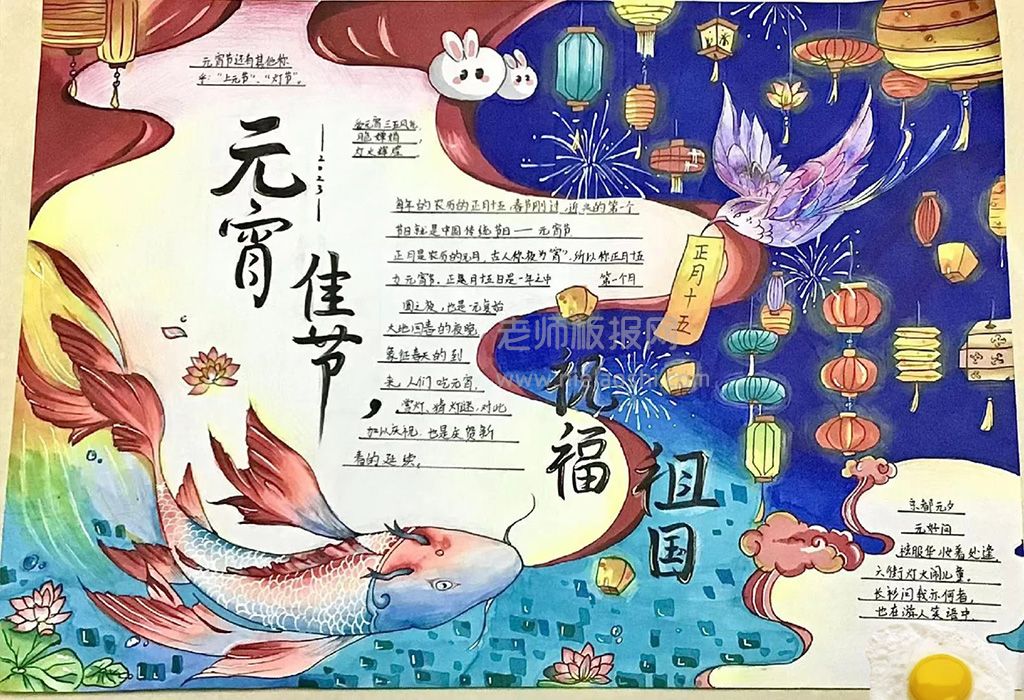 元宵节还有其他称
乎："上元节"、"灯节"。
元宵佳节，
2023
灯火辉煌
每年的农历的正月十五，春节刚过，迎来的第一个
节日就是中国传统节日——元宵节
正月是农历的元月，古人称夜为"宵"，所以称正月十五
为元宵节。正月十五日是一年之中 第一个月
圆之夜，也是一元复始
大地回春的夜晚
象征春天的到
来，人们吃元宵，
赏灯、猜灯谜，对此
加以庆祝，也是庆贺新
春的延续。
正月十五
祝福
祖国
老师板报网
京都元夕
元好问
袨服华妆着处逢，
六街灯火闹儿童。
长衫问我亦何者，
也在游人笑语中。